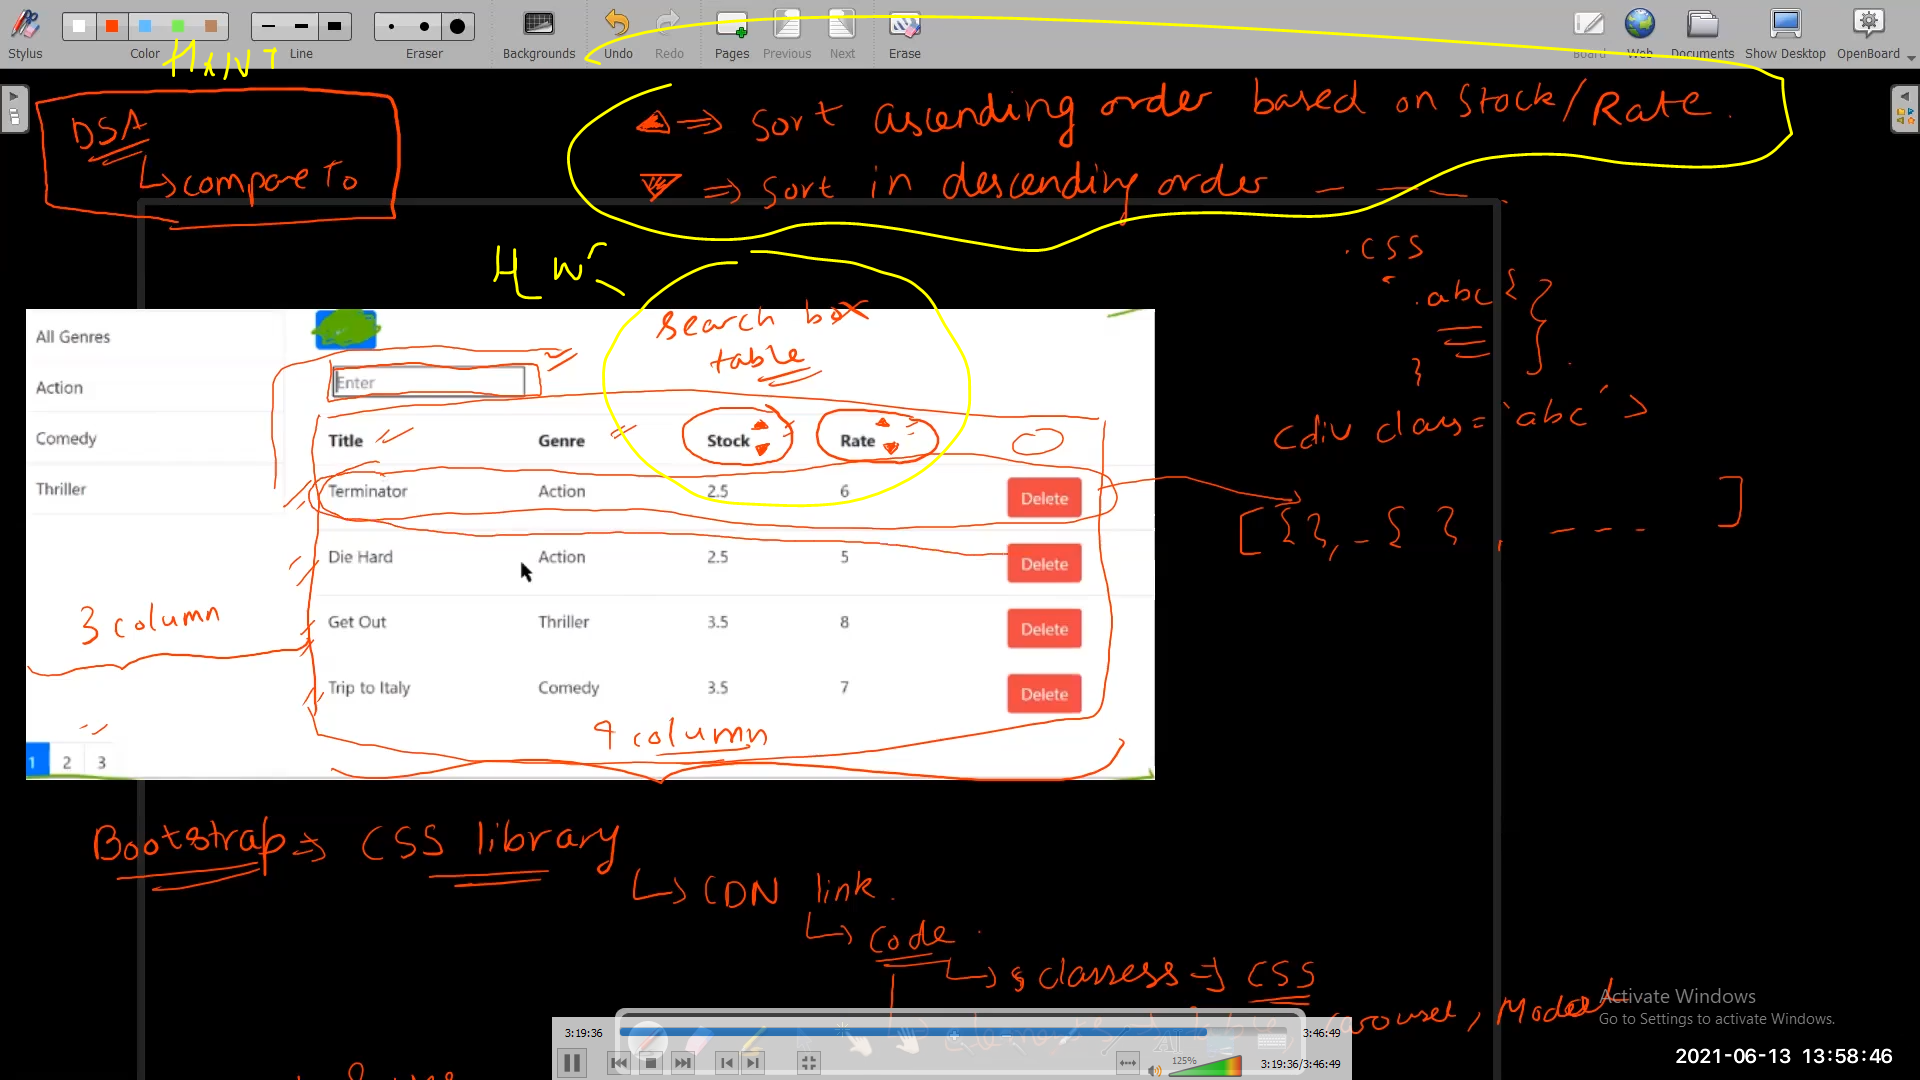 Stylus
Color
Line
Eraser
Backgrounds
Undo
Redo
Pages
Previous
Next
Erase
Board
Web
Documents
Show Desktop
OpenBoard
HINT
DSA
compare To
⇒ Sort ascending order based on Stock/Rate.
⇒ Sort in descending order
HW
.css
.abc { }
}
<div class='abc'>
search box
table
All Genres
Action
Comedy
Thriller
Enter
Title Genre Stock Rate
Terminator Action 2.5 6 Delete
Die Hard Action 2.5 5 Delete
Get Out Thriller 3.5 8 Delete
Trip to Italy Comedy 3.5 7 Delete
[ { }, { } , --- ]
3 column
column
1 2 3
Bootstrap ⇒ CSS library
CDN link.
Code
classess ⇒ CSS
carousel, Modal
Activate Windows
Go to Settings to activate Windows.
3:19:36
3:46:49
125%
3:19:36/3:46:49
2021-06-13 13:58:46